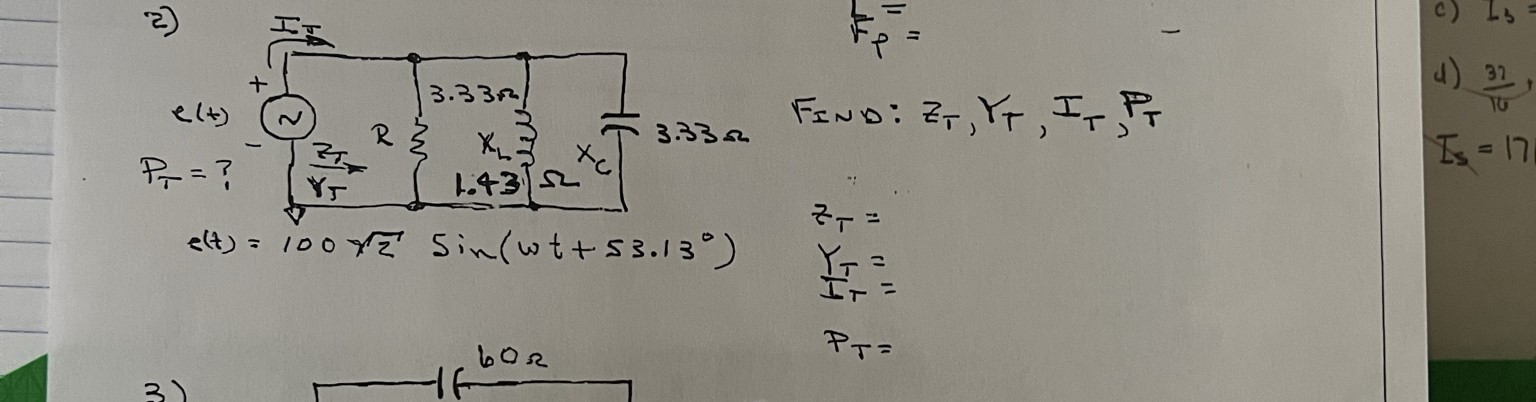 2)
I_T
+
e(t)
-
P_T = ?
Z_T
Y_T
R
3.33Ω
X_L
1.43 Ω
X_C
3.33Ω
e(t) = 100√2 Sin(wt + 53.13°)
F_P =
FIND: Z_T, Y_T, I_T, P_T
Z_T =
Y_T =
I_T =
P_T =
3)
60Ω
c) I_s =
d) 32
I_s = 17